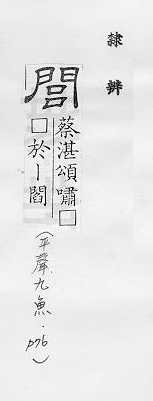 隸辨
閭
蔡湛頌嘯□
□於丨閻
(平聲九魚．p76)